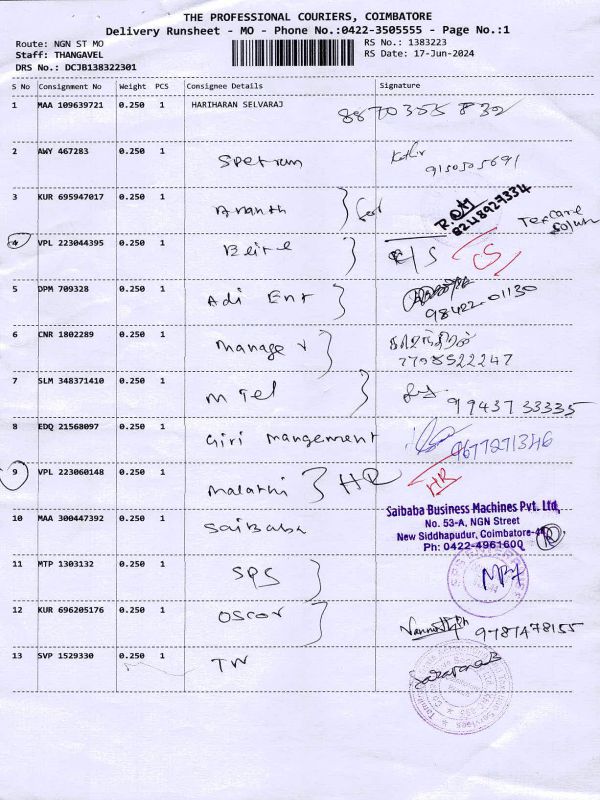 THE PROFESSIONAL COURIERS, COIMBATORE
Delivery Runsheet - MO - Phone No.:0422-3505555 - Page No.:1
Route: NGN ST MO
RS No.: 1383223
Staff: THANGAVEL
RS Date: 17-Jun-2024
DRS No.: DCJB138322301
S No Consignment No Weight PCS Consignee Details Signature
1 MAA 109639721 0.250 1 HARIHARAN SELVARAJ 8870355832
2 AWY 467283 0.250 1 Spetrum 9150505691
3 KUR 695947017 0.250 1 Ananth 8248927334
4 VPL 223044395 0.250 1 CS
5 DPM 709328 0.250 1 Adi Ent 98422-01130
6 CNR 1802289 0.250 1 Manager 7708522247
7 SLM 348371410 0.250 1 M Tel 9943733335
8 EDQ 21568097 0.250 1 Giri Mangement 9677271346
9 VPL 223060148 0.250 1 Malathi HR HR
10 MAA 300447392 0.250 1 Saibaba
Saibaba Business Machines Pvt. Ltd.
No. 53-A, NGN Street
New Siddhapudur, Coimbatore-44
Ph: 0422-4961600
11 MTP 1303132 0.250 1 SPS
12 KUR 696205176 0.250 1 Oscor 9787478155
13 SVP 1529330 0.250 1 TN